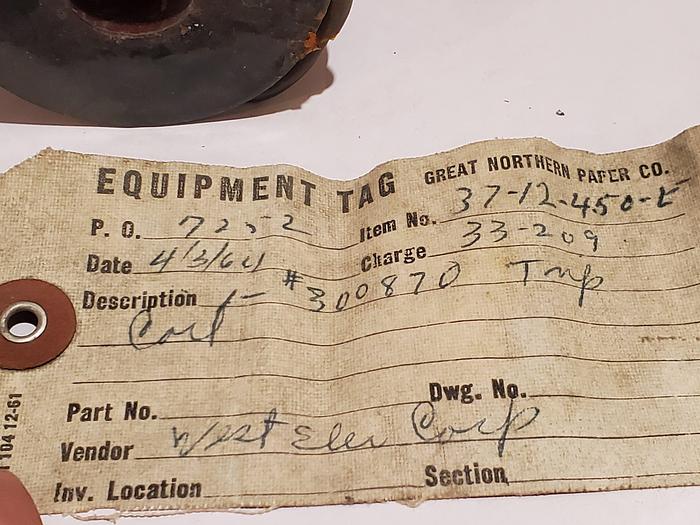 EQUIPMENT TAG GREAT NORTHERN PAPER CO.
P. O. 7252 Item No. 37-12-450-E
Date 4/3/64 Charge 33-209
Description 1- #300870 Trip
Coil
Part No. Dwg. No.
Vendor West Elec Corp
Inv. Location Section
104 12-61